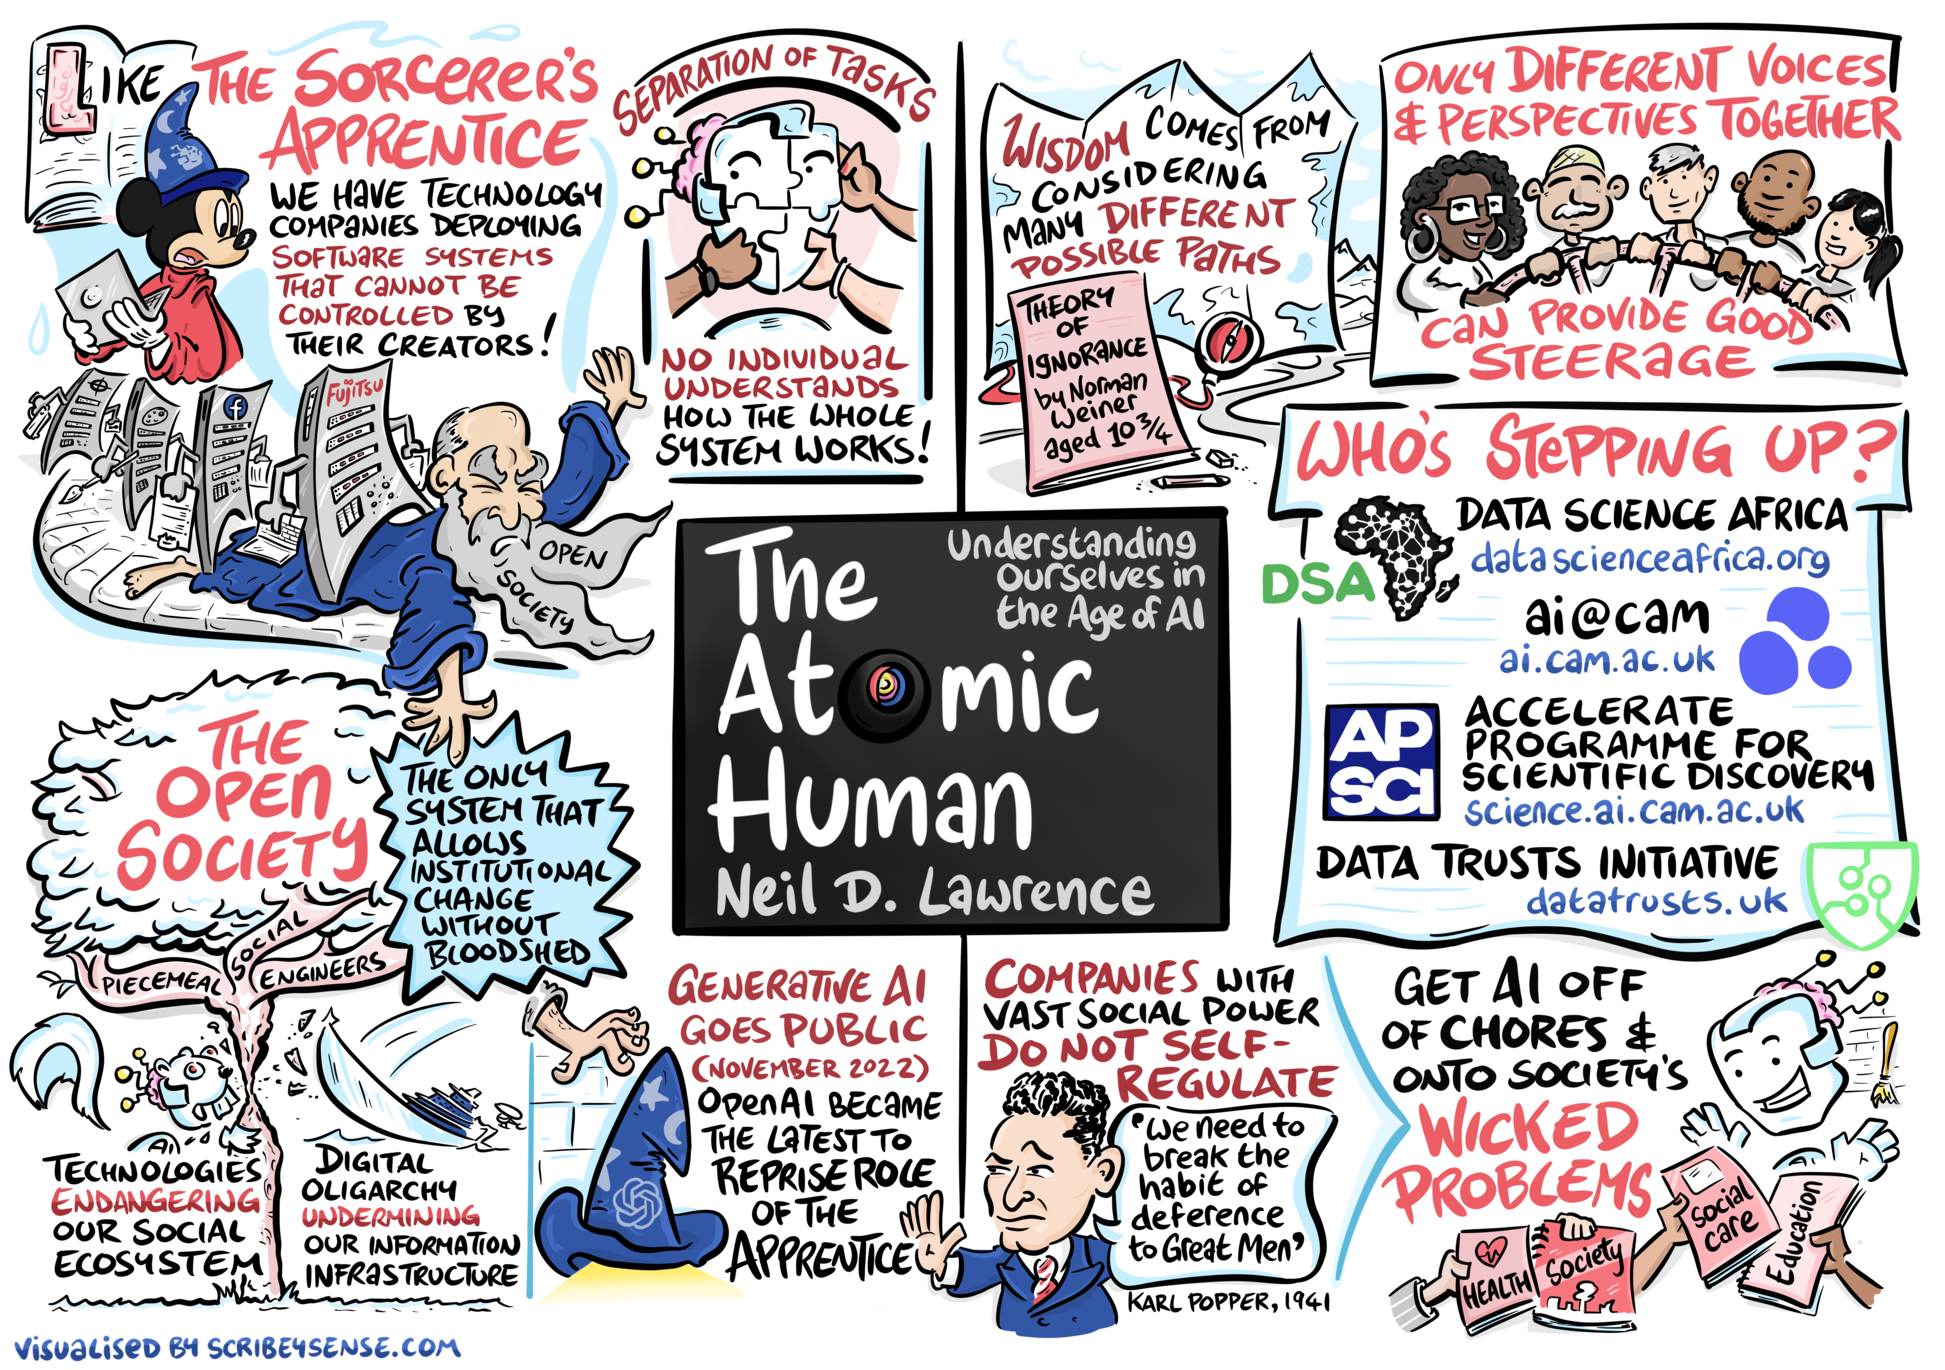 LIKE THE SORCERER'S
APPRENTICE
WE HAVE TECHNOLOGY
COMPANIES DEPLOYING
SOFTWARE SYSTEMS
THAT CANNOT BE
CONTROLLED BY
THEIR CREATORS!
FUJITSU
OPEN
SOCIETY
SEPARATION OF TASKS
NO INDIVIDUAL
UNDERSTANDS
HOW THE WHOLE
SYSTEM WORKS!
WISDOM COMES FROM
CONSIDERING
MANY DIFFERENT
POSSIBLE PATHS
THEORY
OF
IGNORANCE
by Norman
Weiner
aged 10 3/4
ONLY DIFFERENT VOICES
& PERSPECTIVES TOGETHER
CAN PROVIDE GOOD
STEERAGE
WHO'S STEPPING UP?
DSA
DATA SCIENCE AFRICA
datascienceafrica.org
ai@cam
ai.cam.ac.uk
AP
SCI
ACCELERATE
PROGRAMME FOR
SCIENTIFIC DISCOVERY
science.ai.cam.ac.uk
DATA TRUSTS INITIATIVE
datatrusts.uk
The
Atomic
Human
Understanding
Ourselves in
the Age of AI
Neil D. Lawrence
THE
OPEN
SOCIETY
THE ONLY
SYSTEM THAT
ALLOWS
INSTITUTIONAL
CHANGE
WITHOUT
BLOODSHED
PIECEMEAL
SOCIAL
ENGINEERS
AI
TECHNOLOGIES
ENDANGERING
OUR SOCIAL
ECOSYSTEM
DIGITAL
OLIGARCHY
UNDERMINING
OUR INFORMATION
INFRASTRUCTURE
GENERATIVE AI
GOES PUBLIC
(NOVEMBER 2022)
OpenAI BECAME
THE LATEST TO
REPRISE ROLE
OF THE
APPRENTICE
COMPANIES WITH
VAST SOCIAL POWER
DO NOT SELF-
REGULATE
'We need to
break the
habit of
deference
to Great Men'
KARL POPPER, 1941
GET AI OFF
OF CHORES &
ONTO SOCIETY'S
WICKED
PROBLEMS
HEALTH
Society
Social
care
Education
VISUALISED BY SCRIBE4SENSE.COM